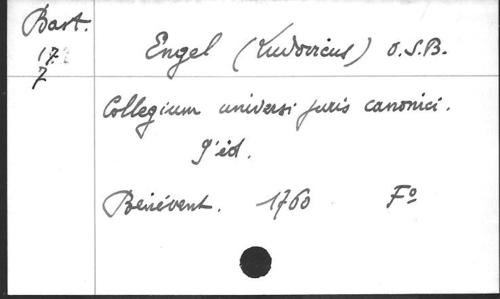 Bart.
7
Engel (Ludovicus) O.S.B.
Collegium universi juris canonici.
9'éd.
Bénévent. 1760 Fo